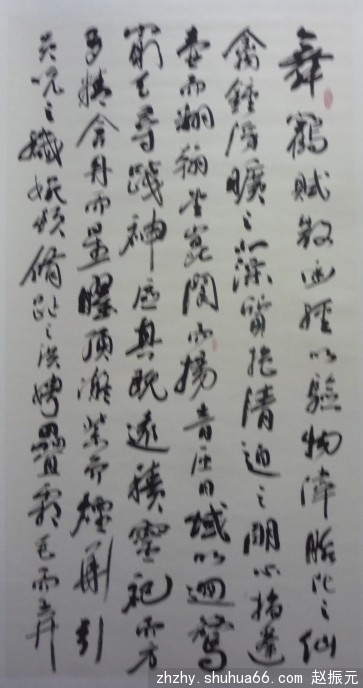 舞鶴賦散幽經以驗物偉胎化之仙
禽鍾浮曠之藻質抱清迥之明心指蓬
壺而翻翰望崑閬而揚音匝日域以迴鶩
窮天尋踐神區其既遠積靈祀而方
多精含丹而星曜頂凝紫而煙華引
員吭之纖婉頓脩趾之洪姱疊霜毛而弄
zhzhy.shuhua66.com 赵振元